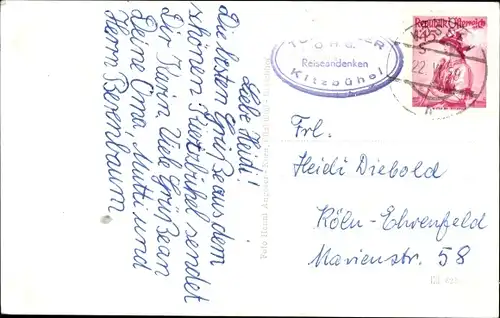 Liebe Heidi!
Die besten Grüße aus dem
schönen Kitzbühel sendet
Dir Karin. Viele Grüße an
Deine Oma, Mutti und
Herrn Berenbaum
O H G.
Reiseandenken
Kitzbühel
Republik Österreich
1.45 S
22.
Frl.
Heidi Diebold
Köln-Ehrenfeld
Marienstr. 58
Foto Hannl